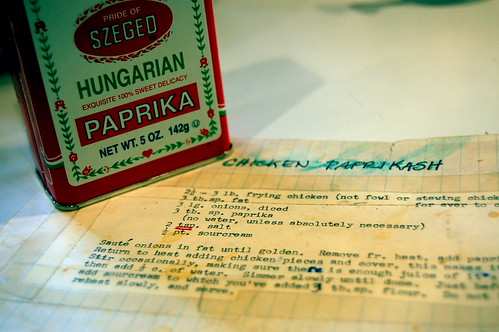 PRIDE OF
SZEGED
HUNGARIAN
EXQUISITE 100% SWEET DELICACY
PAPRIKA
NET WT. 5 OZ. 142g
CHICKEN PAPRIKASH
2½ - 3 lb. frying chicken (not fowl or stewing chick
3 tb.sp. fat for ever to
3 lg. onions, diced
3 tb. sp. paprika
(no water, unless absolutely necessary)
tsp. salt
pt. sourcream
Sauté onions in fat until golden. Remove fr. heat, add papr
Return to heat adding chicken pieces and cover,
Stir occasionally, making sure there is enough juice of
then add c. of water. Simmer slowly until done. Just
add sourcream to which you've added 3 tb.sp. flour. Do not
reheat slowly, and